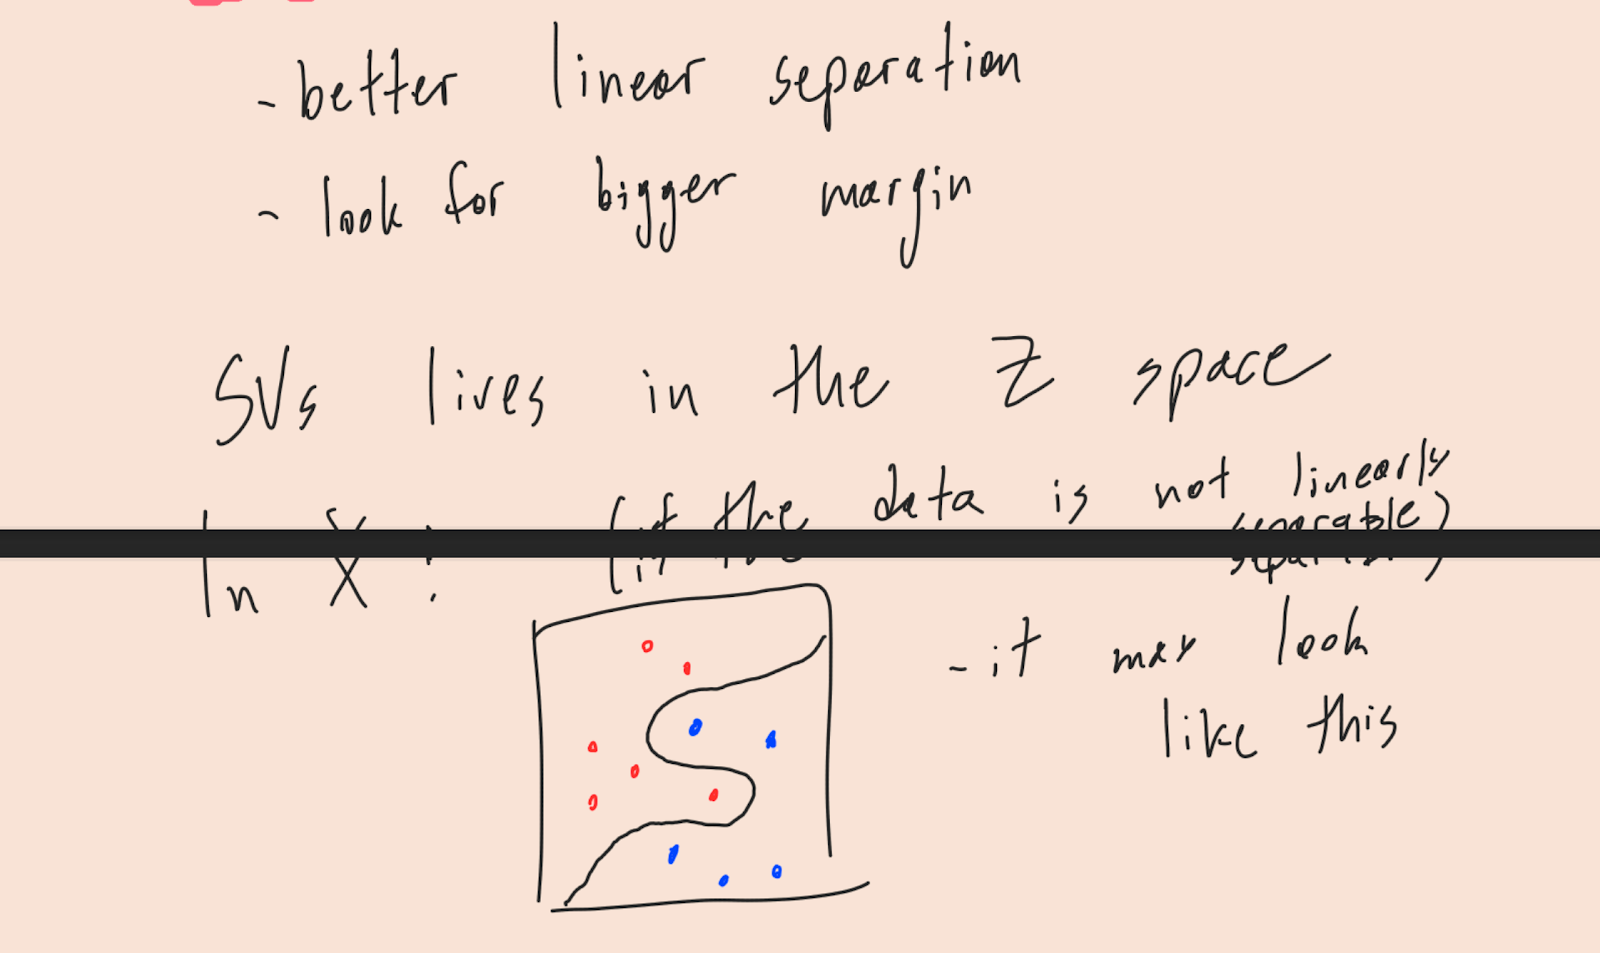 - better linear separation
- look for bigger margin
SVs lives in the Z space
In X : (if the data is not linearly
separable)
- it may look
like this